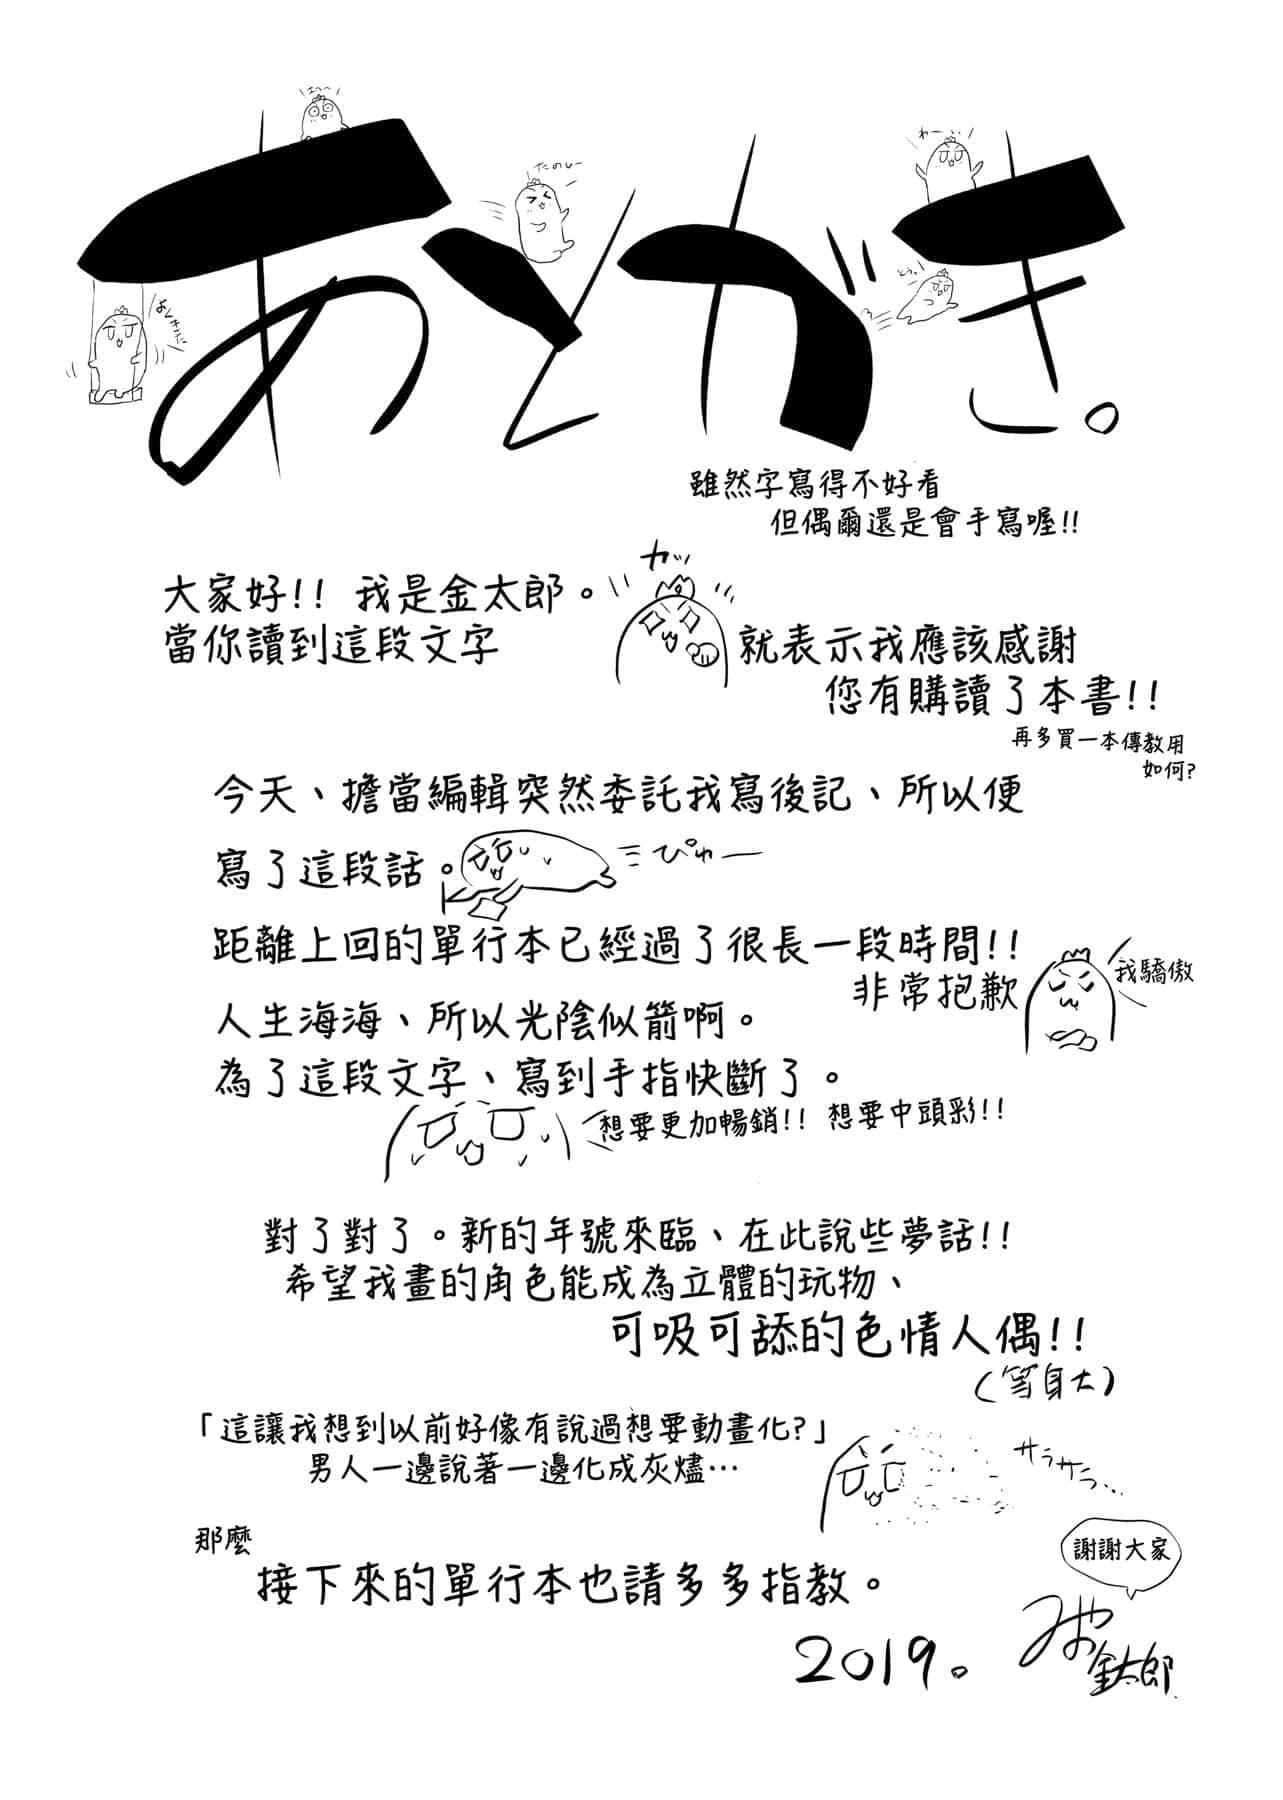 えへへ
たのしー
わーーい
あとがき。
とぅっ
雖然字寫得不好看
但偶爾還是會手寫喔!!
カッ
大家好!! 我是金太郎。
當你讀到這段文字
就表示我應該感謝
您有購讀了本書!!
再多買一本傳教用
如何?
今天、擔當編輯突然委託我寫後記、所以便
寫了這段話。
ぴゅー
距離上回的單行本已經過了很長一段時間!!
非常抱歉
我驕傲
人生海海、所以光陰似箭啊。
為了這段文字、寫到手指快斷了。
想要更加暢銷!! 想要中頭彩!!
對了對了。新的年號來臨、在此說些夢話!!
希望我畫的角色能成為立體的玩物、
可吸可舔的色情人偶!!
(等身大)
「這讓我想到以前好像有說過想要動畫化?」
男人一邊說著一邊化成灰燼…
サラサラ…
那麼
接下來的單行本也請多多指教。
謝謝大家
2019。
金太郎